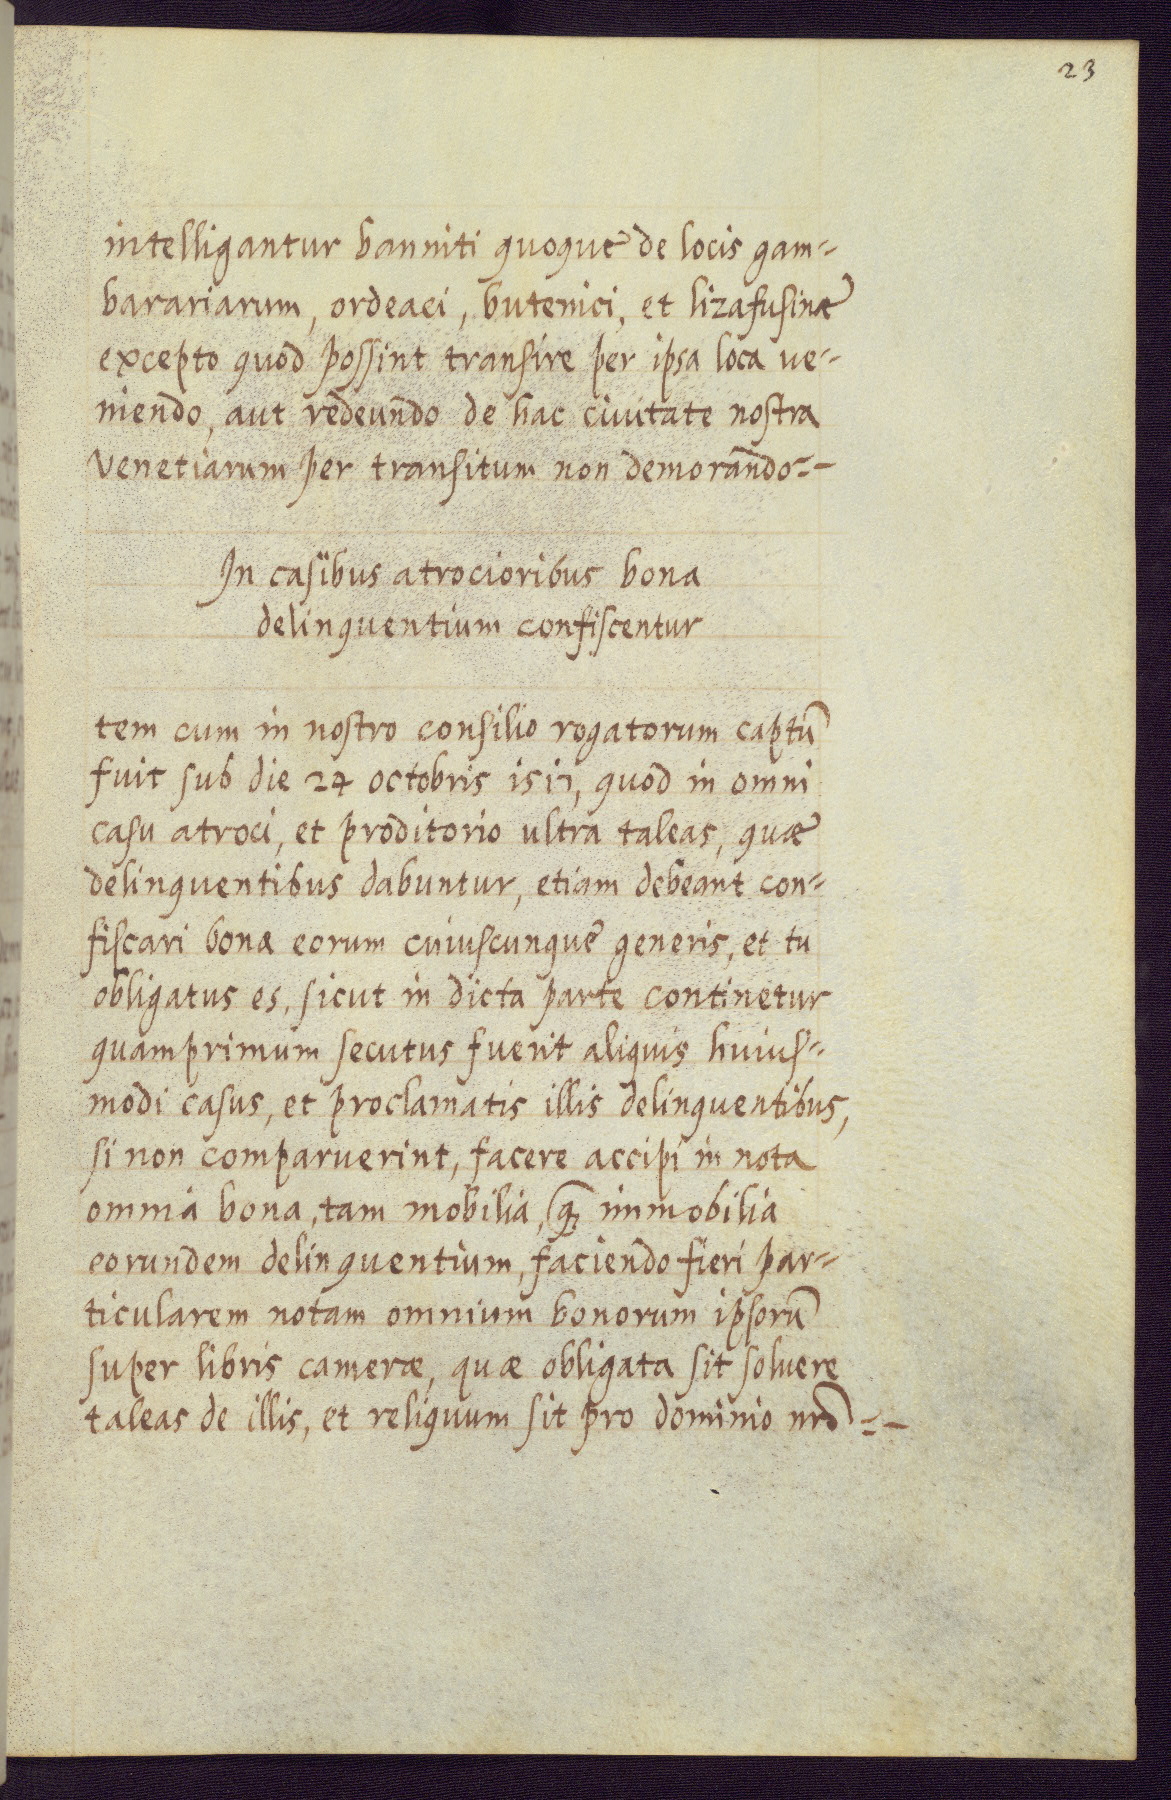 23
intelligantur banniti quoque de locis gam-
barariarum, ordeaei, butenici, et lizafusinæ
excepto quod possint transire per ipsa loca ve-
niendo, aut redeundo de hac ciuitate nostra
venetiarum per transitum non demorando--
In casibus atrocioribus bona
delinquentium confiscentur
tem cum in nostro consilio rogatorum captū
fuit sub die 24 octobris 1511, quod in omni
casu atroci, et proditorio ultra taleas, quæ
delinquentibus dabuntur, etiam debeant con-
fiscari bona eorum cuiuscunque generis, et tu
obligatus es, sicut in dicta parte continetur
quamprimum secutus fuerit aliquis huius-
modi casus, et proclamatis illis delinquentibus,
si non comparuerint, facere accipi in nota
omnia bona, tam mobilia, q̃ immobilia
eorundem delinquentium, faciendo fieri par-
ticularem notam omnium bonorum ipsorū
super libris cameræ, quæ obligata sit soluere
taleas de illis, et reliquum sit pro dominio nrō--